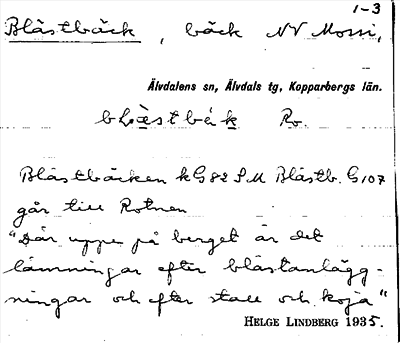 1-3
Blästbäck, bäck NV Mossi,
Älvdalens sn, Älvdals tg, Kopparbergs län.
Ro.
Blästbäcken k G82 S.M Blästb. G107
går till Rotnen
"Där uppe på berget är det
lämningar efter blästanlägg-
ningar och efter stall och koja"
HELGE LINDBERG 1935.